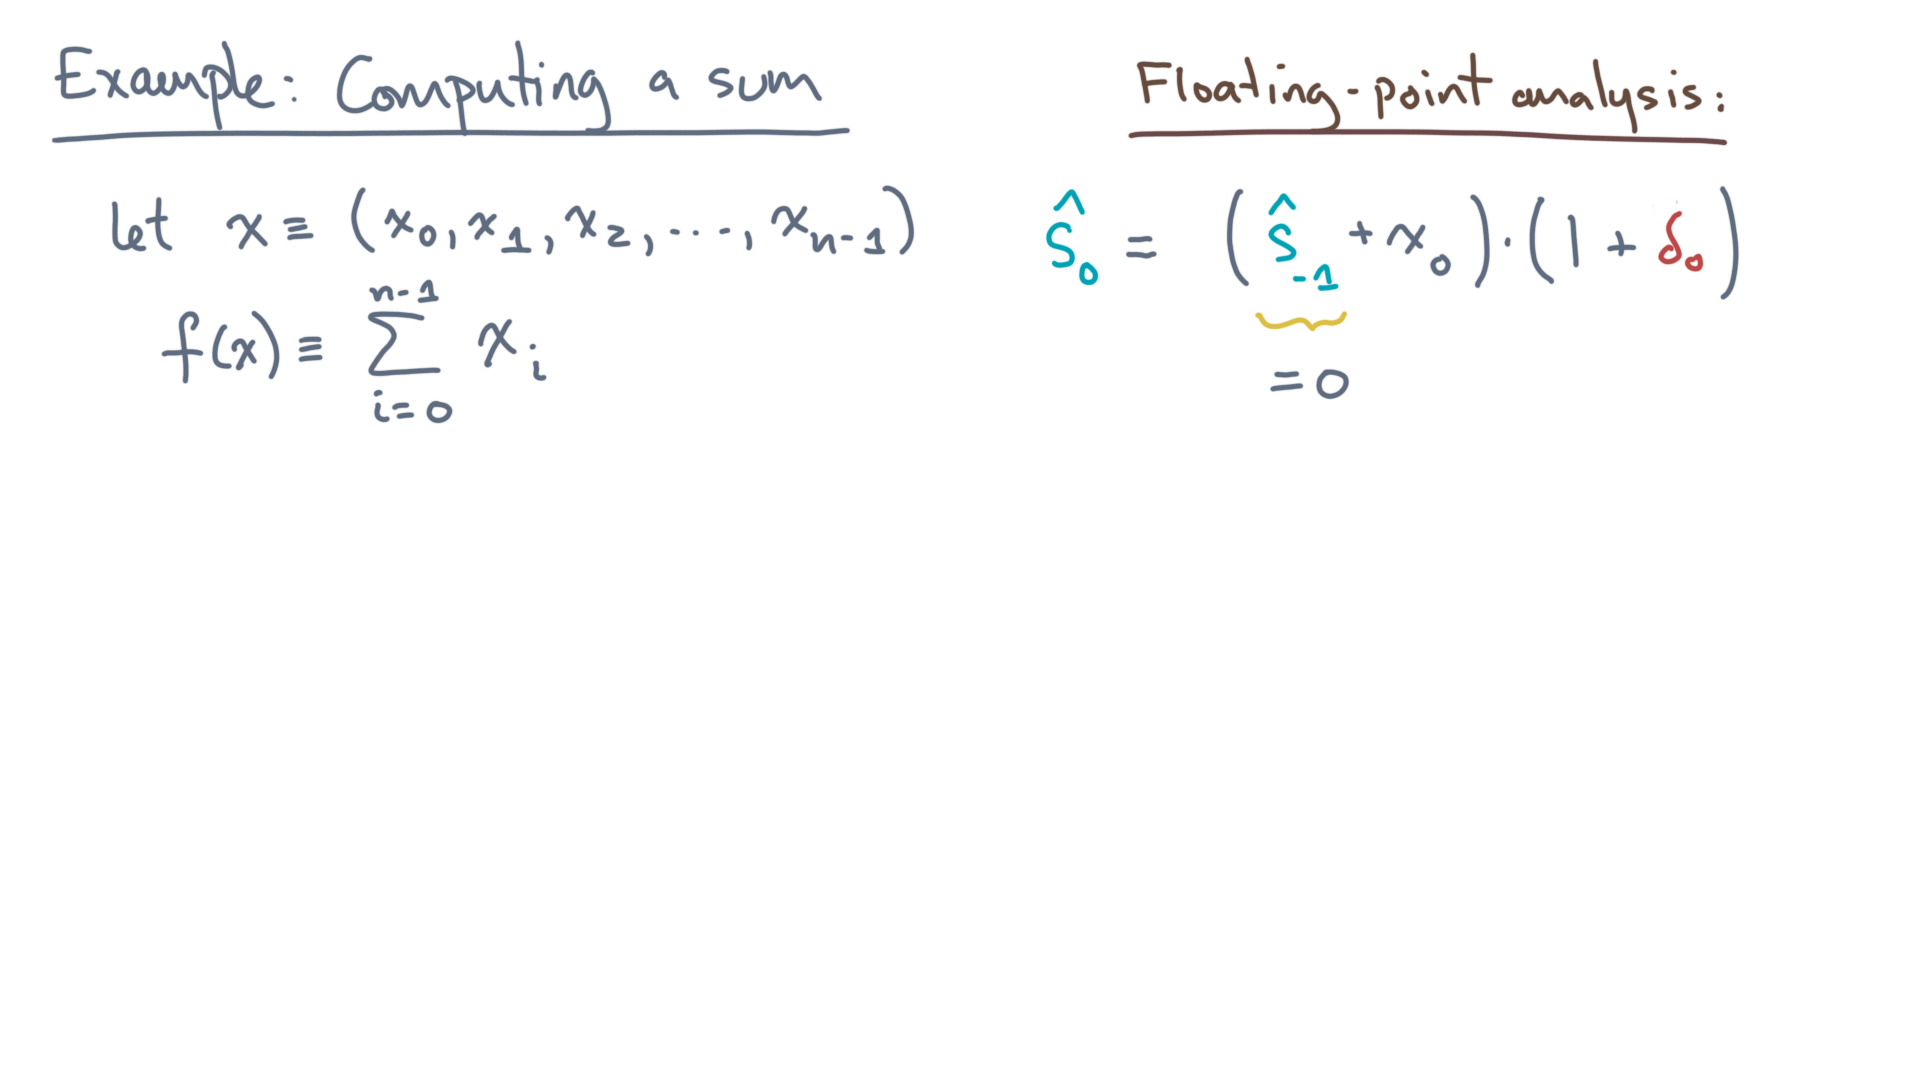 Example: Computing a sum
let x ≡ (x₀, x₁, x₂, ..., xₙ₋₁)
n-1
f(x) ≡ ∑ xᵢ
i=0
Floating-point analysis:
ŝ₀ = (ŝ₋₁ + x₀)·(1 + δ₀)
=0